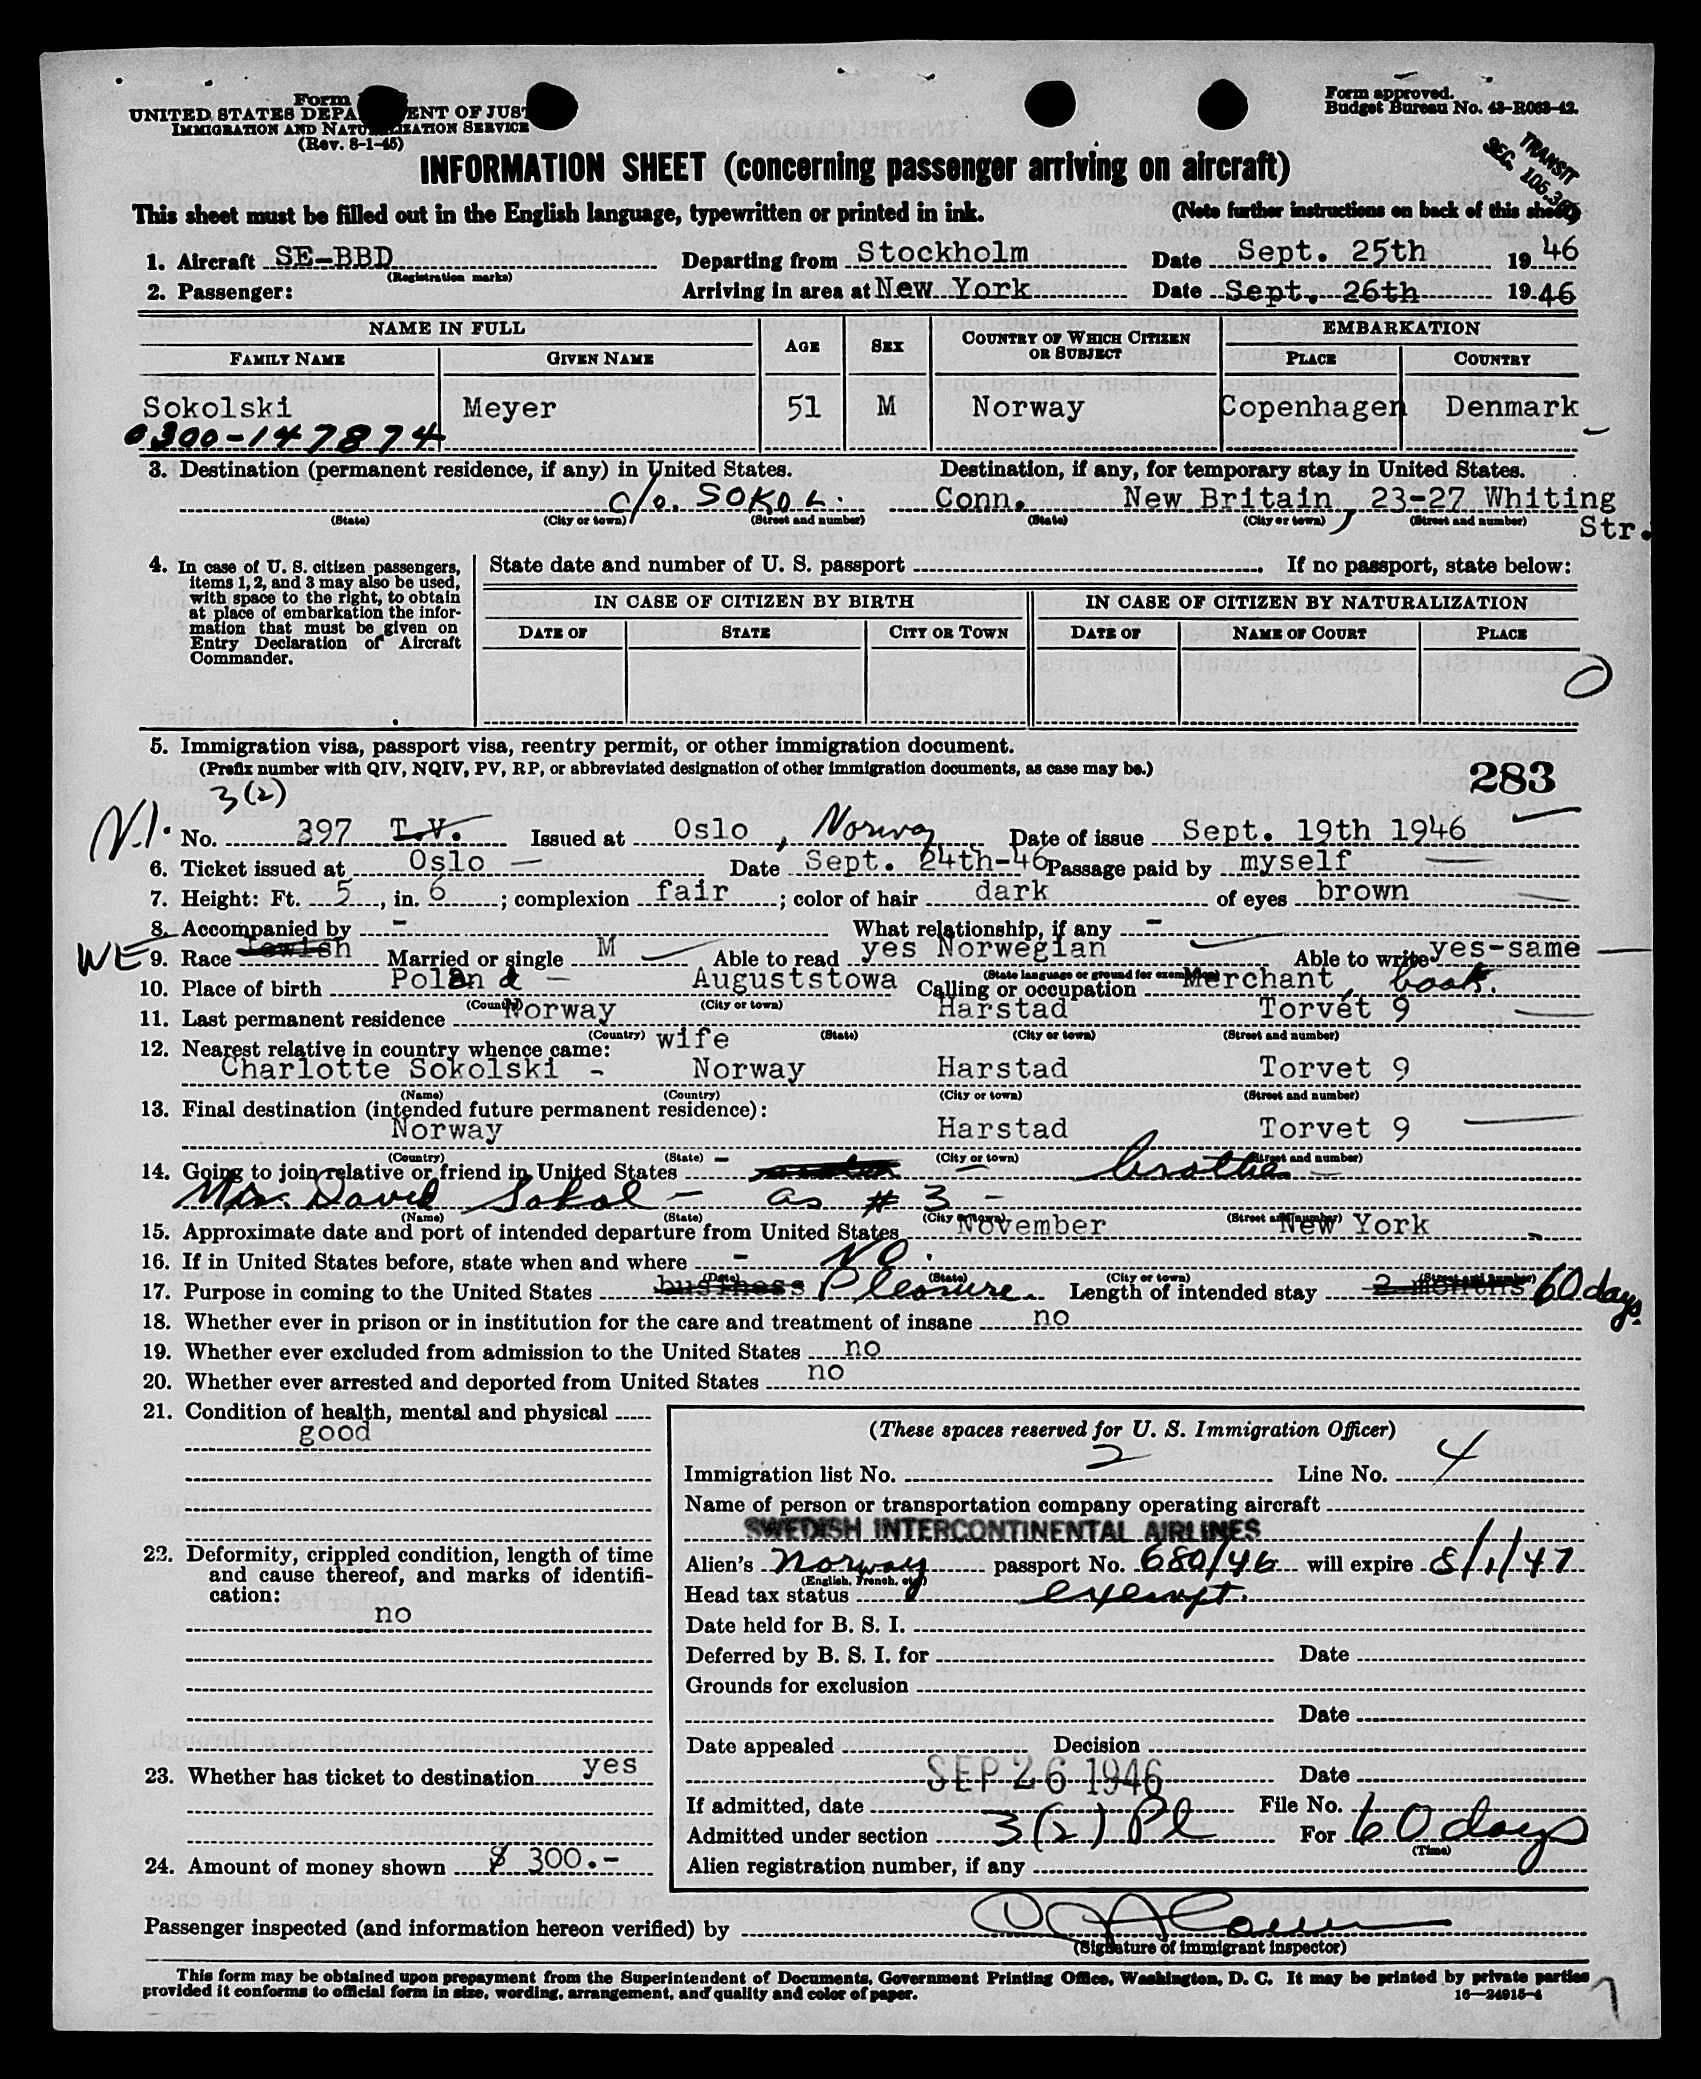 Form
UNITED STATES DEPA ENT OF JUST
IMMIGRATION AND NATU IZATION SERVICE
(Rev. 8-1-45)
Form approved.
Budget Bureau No. 43-R063-42.
TRANSIT
SEC. 105.3(6)
INFORMATION SHEET (concerning passenger arriving on aircraft)
This sheet must be filled out in the English language, typewritten or printed in ink. (Note further instructions on back of this sheet)
1. Aircraft SE-BBD Departing from Stockholm Date Sept. 25th 1946
(Registration marks)
2. Passenger: Arriving in area at New York Date Sept. 26th 1946
NAME IN FULL AGE SEX COUNTRY OF WHICH CITIZEN OR SUBJECT EMBARKATION
FAMILY NAME GIVEN NAME PLACE COUNTRY
Sokolski Meyer 51 M Norway Copenhagen Denmark
0300-147874
3. Destination (permanent residence, if any) in United States. Destination, if any, for temporary stay in United States.
c/o. SOKOL. Conn. New Britain, 23-27 Whiting Str.
(State) (City or town) (Street and number) (State) (City or town) (Street and number)
4. In case of U. S. citizen passengers, items 1, 2, and 3 may also be used, with space to the right, to obtain at place of embarkation the information that must be given on Entry Declaration of Aircraft Commander.
State date and number of U. S. passport If no passport, state below:
IN CASE OF CITIZEN BY BIRTH IN CASE OF CITIZEN BY NATURALIZATION
DATE OF STATE CITY OR TOWN DATE OF NAME OF COURT PLACE
0
5. Immigration visa, passport visa, reentry permit, or other immigration document.
(Prefix number with QIV, NQIV, PV, RP, or abbreviated designation of other immigration documents, as case may be.)
283
3(2)
V.I. No. 397 T.V. Issued at Oslo, Norway Date of issue Sept. 19th 1946
6. Ticket issued at Oslo — Date Sept. 24th-46 Passage paid by myself
7. Height: Ft. 5, in. 6; complexion fair; color of hair dark of eyes brown
8. Accompanied by - What relationship, if any -
WE 9. Race Jewish Married or single M Able to read yes Norwegian Able to write yes-same
(State language or ground for exemption)
10. Place of birth Poland — Auguststowa Calling or occupation Merchant, book.
(Country) (City or town)
11. Last permanent residence Norway Harstad Torvet 9
(Country) (State) (City or town) (Street and number)
12. Nearest relative in country whence came: wife
Charlotte Sokolski - Norway Harstad Torvet 9
(Name) (Country) (City or town) (Street and number)
13. Final destination (intended future permanent residence):
Norway Harstad Torvet 9
(Country) (State) (City or town) (Street and number)
14. Going to join relative or friend in United States — brother —
Mr. David Sokol — as # 3 —
(Name) (State) (City or town) (Street and number)
15. Approximate date and port of intended departure from United States November New York -
16. If in United States before, state when and where - NO.
(Date) (State) (City or town) (Street and number)
17. Purpose in coming to the United States business Pleasure. Length of intended stay 2 months 60 days.
18. Whether ever in prison or in institution for the care and treatment of insane no
19. Whether ever excluded from admission to the United States no
20. Whether ever arrested and deported from United States no
21. Condition of health, mental and physical
good
22. Deformity, crippled condition, length of time and cause thereof, and marks of identification:
no
23. Whether has ticket to destination yes
24. Amount of money shown $ 300.-
(These spaces reserved for U. S. Immigration Officer)
Immigration list No. 2 Line No. 4
Name of person or transportation company operating aircraft
SWEDISH INTERCONTINENTAL AIRLINES
Alien's Norway passport No. 680/46 will expire 8/1/47
(English, French, etc.)
Head tax status exempt.
Date held for B. S. I.
Deferred by B. S. I. for Date
Grounds for exclusion
Date
Date appealed Decision
SEP 26 1946 Date
If admitted, date File No.
Admitted under section 3(2) Pl For 60 days
(Time)
Alien registration number, if any
Passenger inspected (and information hereon verified) by
(Signature of immigrant inspector)
This form may be obtained upon prepayment from the Superintendent of Documents, Government Printing Office, Washington, D. C. It may be printed by private parties
provided it conforms to official form in size, wording, arrangement, and quality and color of paper. 16—24915-4